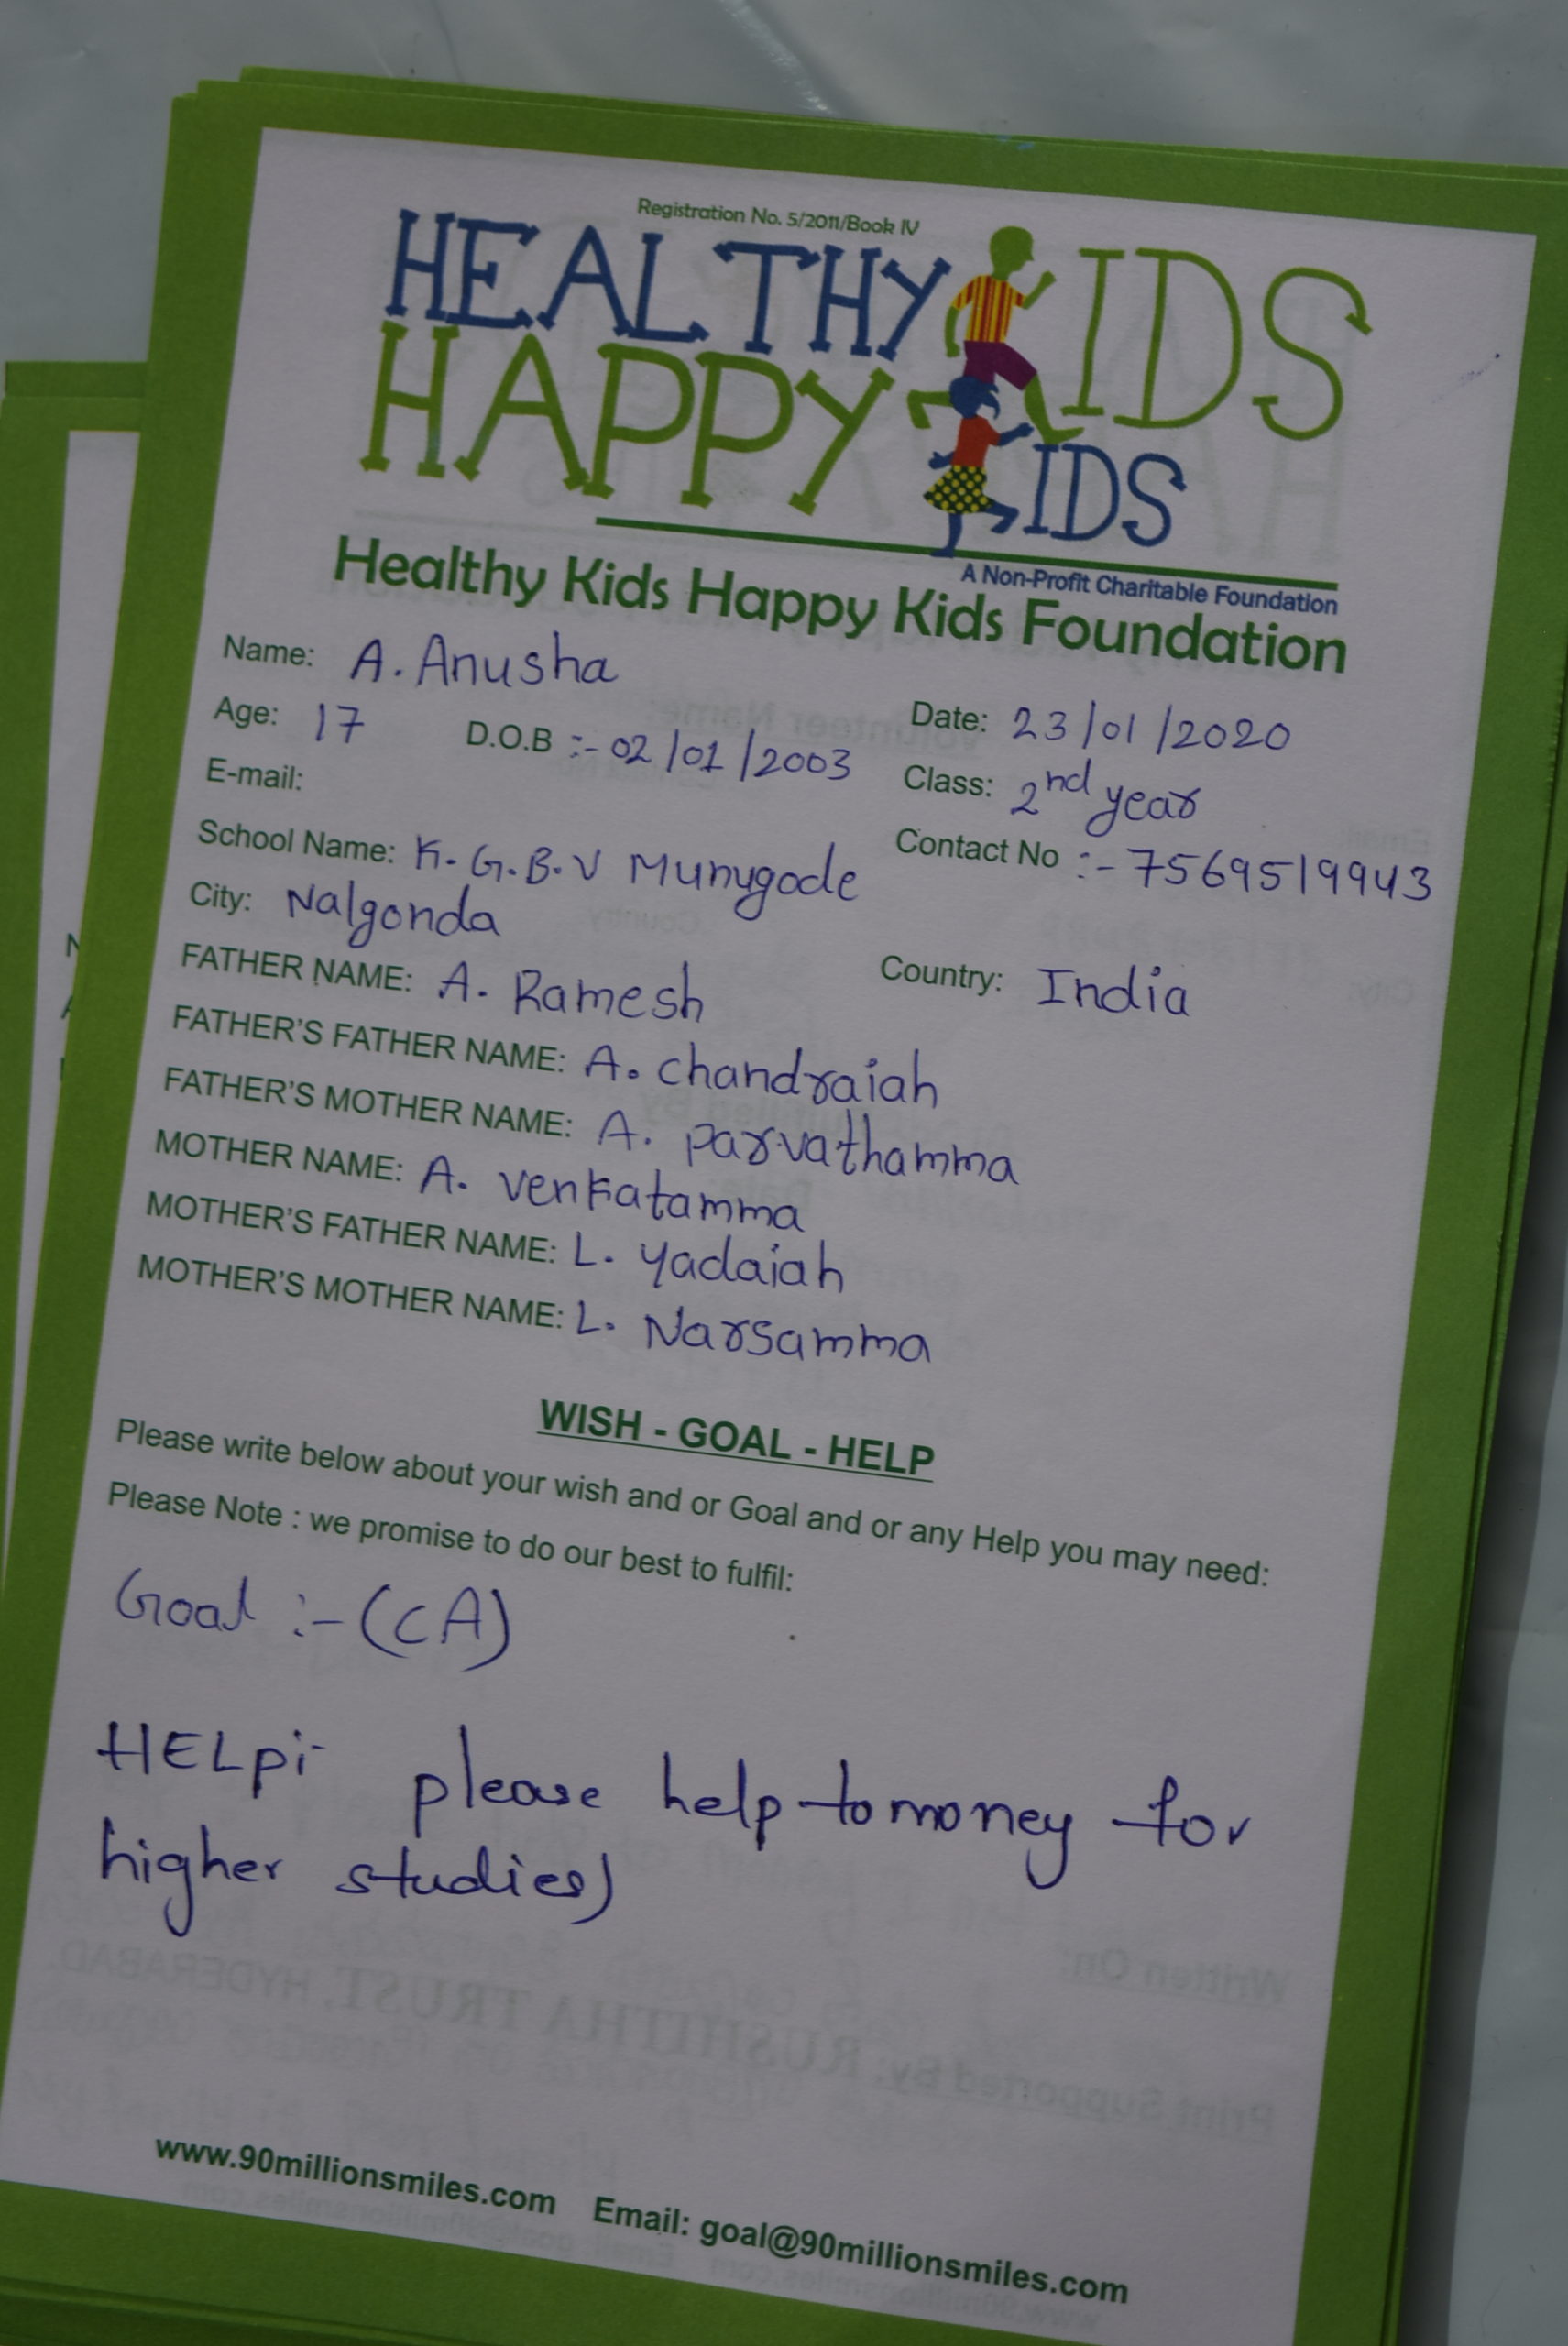 Registration No. 5/2011/Book IV
HEALTHY KIDS
HAPPY KIDS
A Non-Profit Charitable Foundation
Healthy Kids Happy Kids Foundation
Name: A. Anusha
Date: 23/01/2020
Age: 17 D.O.B :- 02/01/2003
Class: 2nd year
E-mail:
Contact No :- 7569519943
School Name: K. G. B. V Munugode
City: Nalgonda
Country: India
FATHER NAME: A. Ramesh
FATHER'S FATHER NAME: A. chandraiah
FATHER'S MOTHER NAME: A. parvathamma
MOTHER NAME: A. venkatamma
MOTHER'S FATHER NAME: L. yadaiah
MOTHER'S MOTHER NAME: L. Narsamma
WISH - GOAL - HELP
Please write below about your wish and or Goal and or any Help you may need:
Please Note : we promise to do our best to fulfil:
Goal :- (CA)
HELP:- please help to money for
higher studies)
Written On:
Print Supported By: RUSHITHA TRUST, HYDERABAD
www.90millionsmiles.com Email: goal@90millionsmiles.com